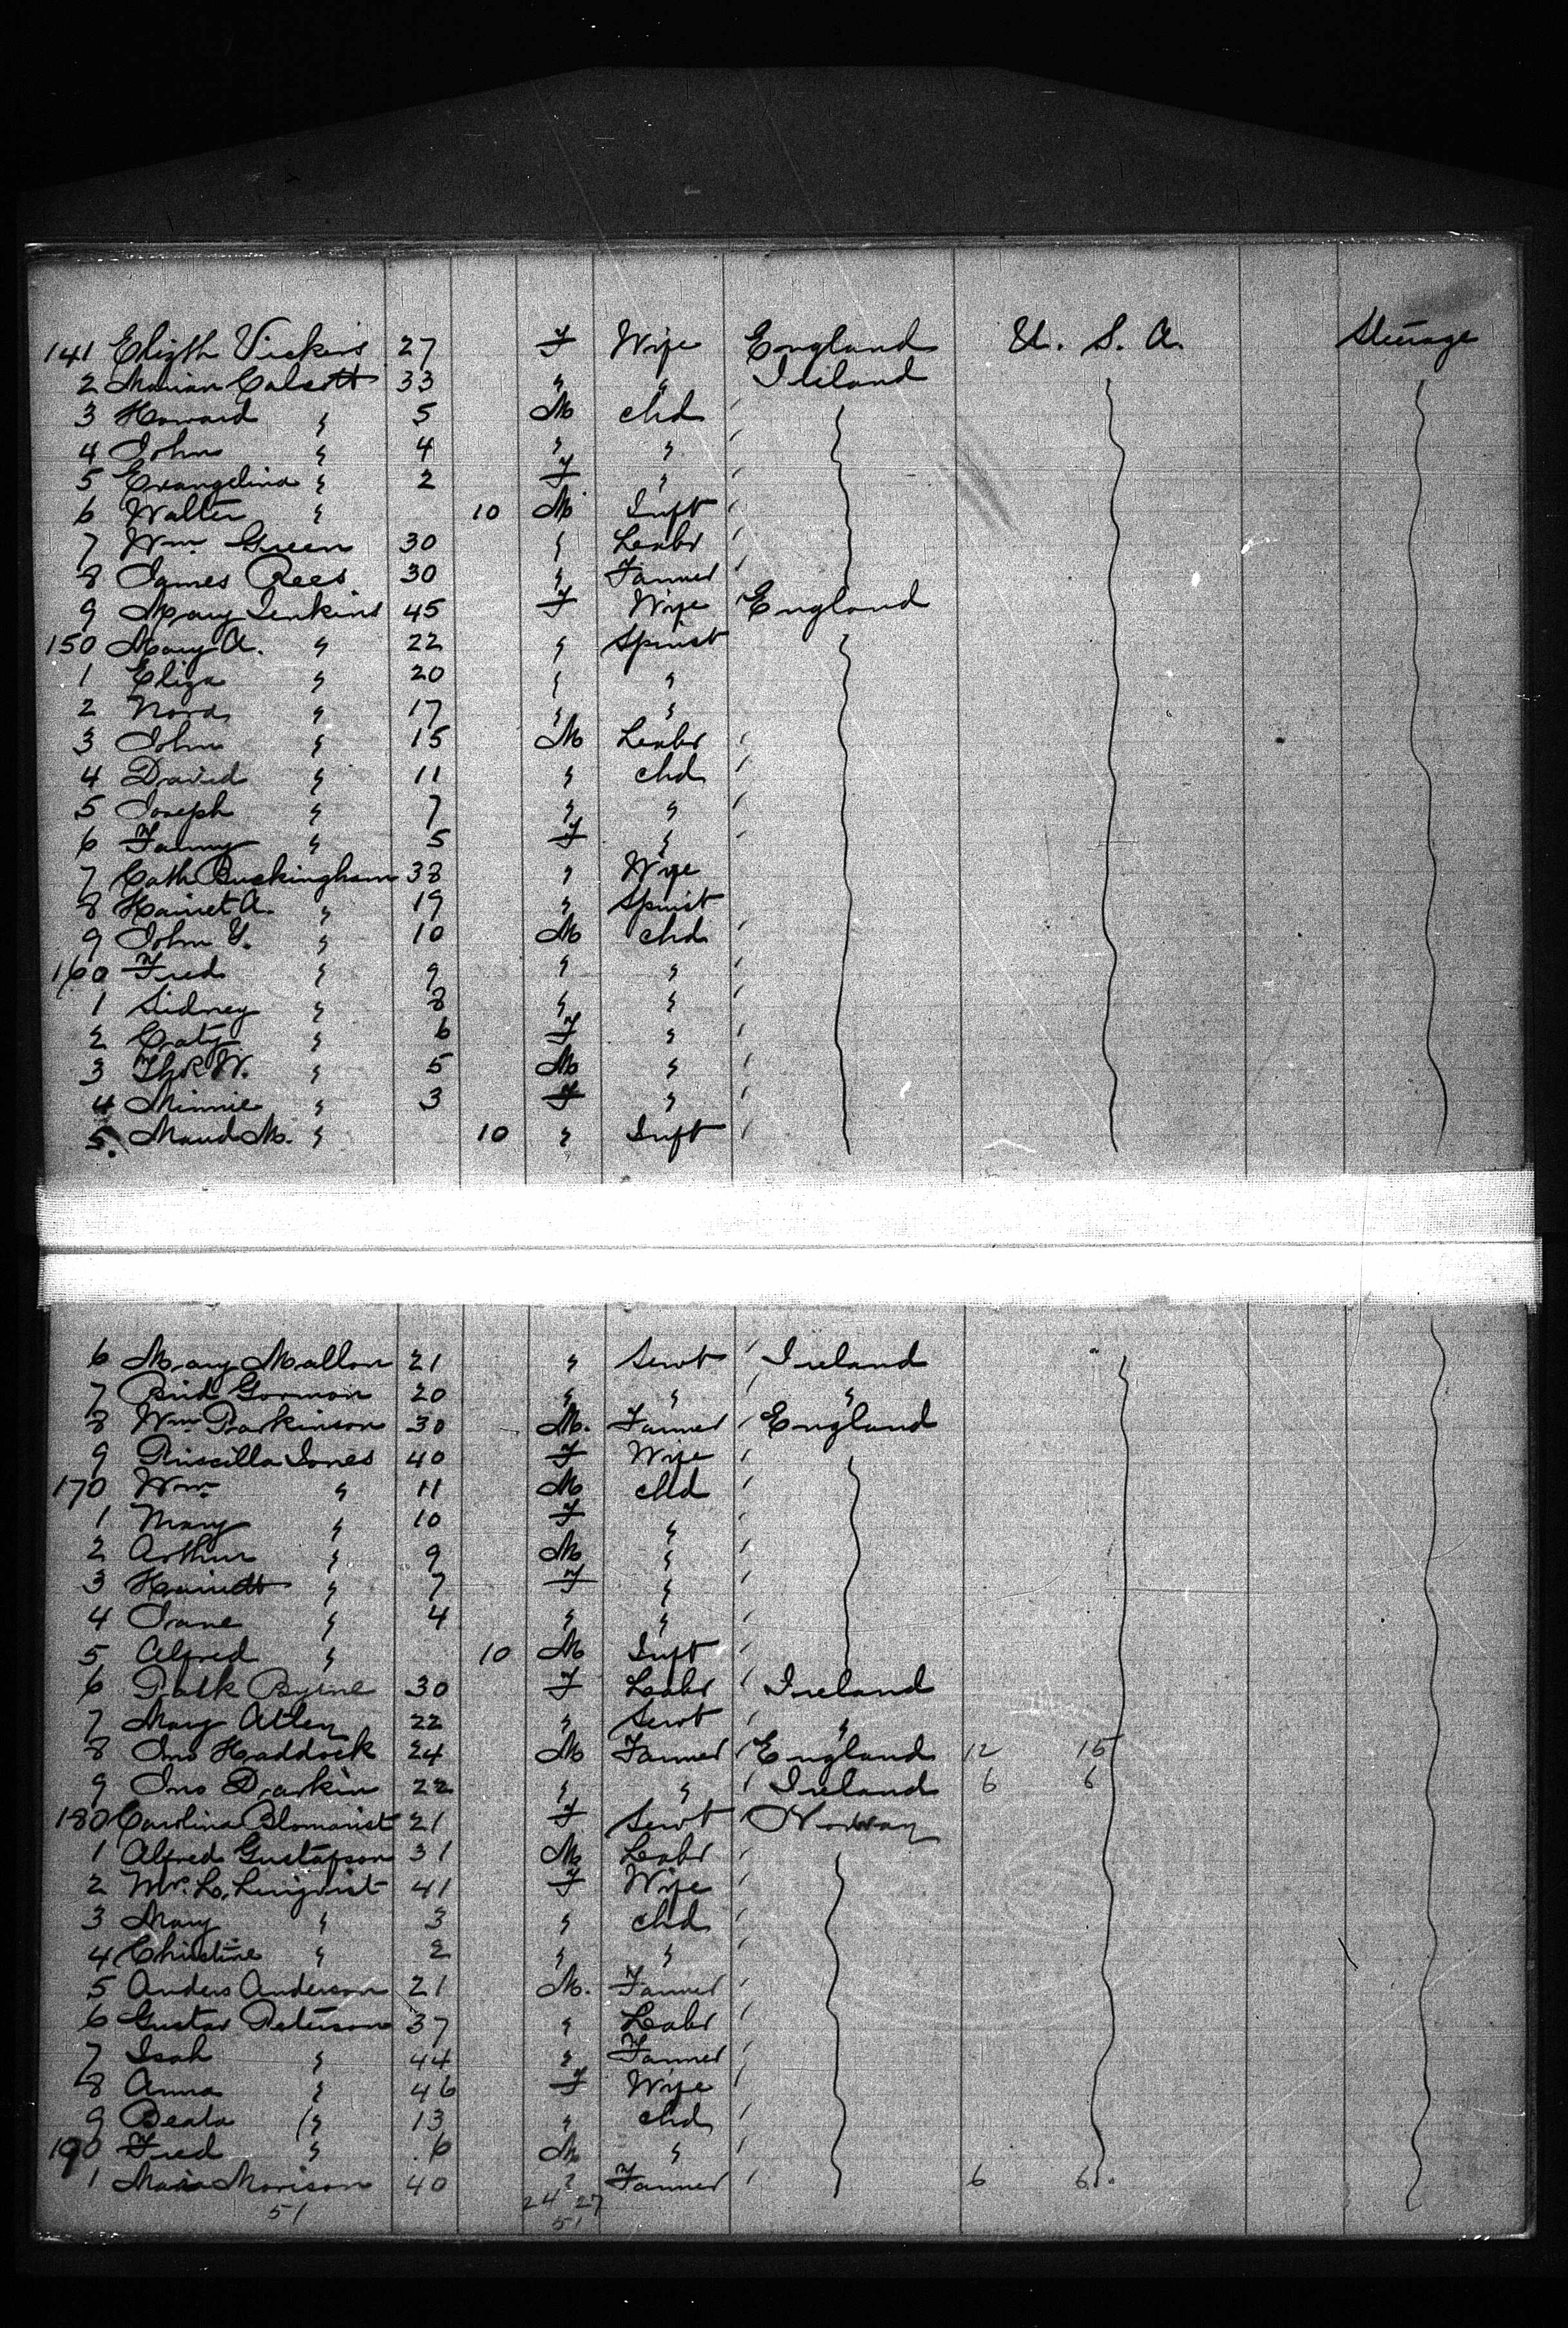 141 Elizth Vickers 27 F Wife England U. S. A. Steerage
2 Marian Calcott 33 " " Ireland
3 Howard " 5 M chd
4 John " 4 " "
5 Evangelina " 2 F "
6 Walter " 10 M Inft
7 Wm Green 30 " Labr
8 James Rees 30 " Farmer
9 Mary Jenkins 45 F Wife England
150 Mary A. " 22 " Spinst
1 Eliza " 20 " "
2 Nora " 17 " "
3 John " 15 M Labr
4 David " 11 " chd
5 Joseph " 7 " "
6 Fanny " 5 F "
7 Cath Buckingham 38 " Wife
8 Harriet A. " 19 " Spinst
9 John Y. " 10 M chd
160 Fred " 9 " "
1 Sidney " 8 " "
2 Caty " 6 F "
3 W. " 5 M "
4 Minnie " 3 F "
5 Maud M. " 10 " Inft
6 Mary Mallon 21 " Servt Ireland
7 Brid Gorman 20 " " "
8 Wm Parkinson 30 M. Farmer England
9 Priscilla Jones 40 F Wife
170 Wm " 11 M chd
1 Mary " 10 F "
2 Arthur " 9 M "
3 Harriett " 7 F "
4 Jane " 4 " "
5 Alfred " 10 M Inft
6 Patk Byrne 30 F Labr Ireland
7 Mary Atley 22 " Servt "
8 Jno Haddock 24 M Farmer England 12 15
9 Jno Darkin 22 " " Ireland 6 6
180 Carolina Blomqvist 21 F Servt Norway
1 Alfred Gustafson 31 M Labr
2 Mrs. L. Linqvist 41 F Wife
3 Mary " 3 " chd
4 Christine " 2 " "
5 Anders Anderson 21 M. Farmer
6 Gustav Peterson 37 " Labr
7 Isah " 44 " Farmer
8 Anna " 46 F Wife
9 Beata " 13 " chd
190 Fred " 6 M "
1 Morison 40 " Farmer 6 6
51 24 27
51